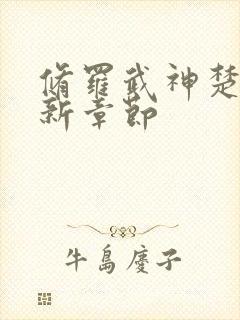 脩羅武神楚
新章節
牛島慶子